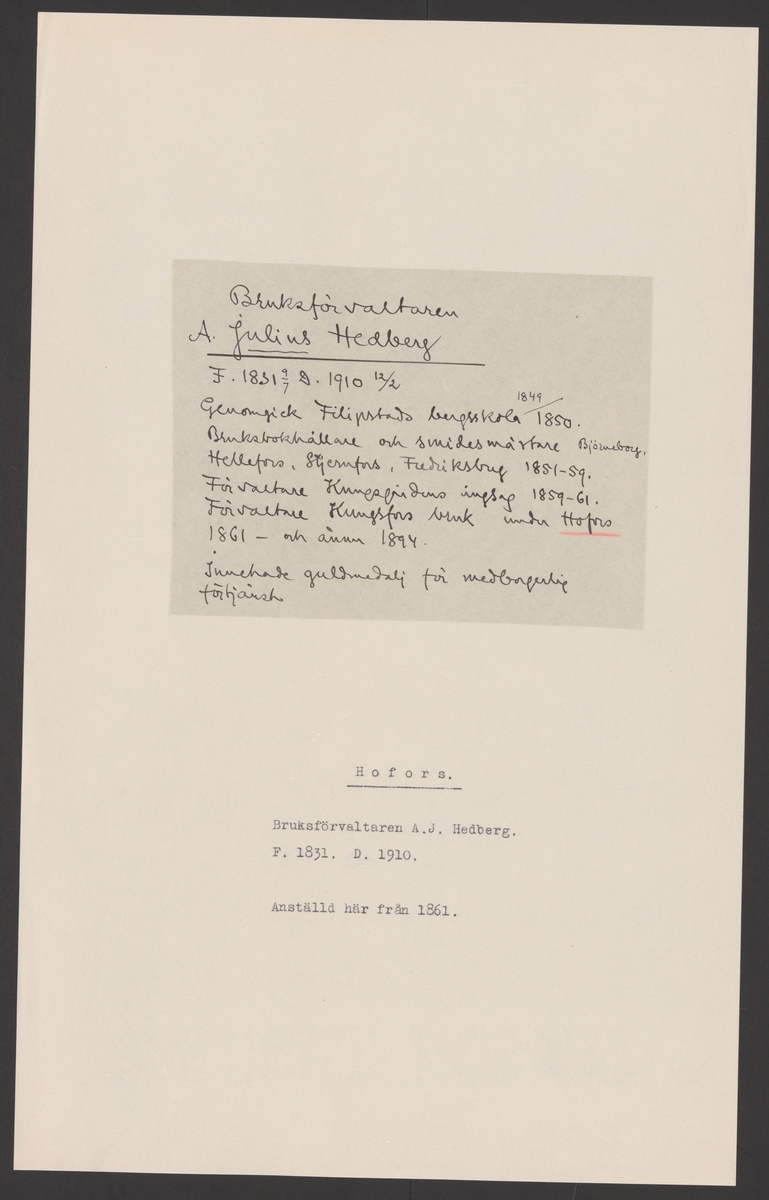 Bruksförvaltaren
A. Julius Hedberg
F. 1831 9/7 D. 1910 12/2
Genomgick Filipstads bergsskola 1849/1850.
Bruksbokhållare och smidesmästare Björneborg,
Hellefors, Stjernfors, Fredriksberg 1851-59.
Förvaltare Kungsgårdens ångsåg 1859-61.
Förvaltare Kungsfors bruk under Hofors
1861 — och ännu 1894.
Innehade guldmedalj för medborgerlig
förtjänst
Hofors.
Bruksförvaltaren A.J. Hedberg.
F. 1831. D. 1910.
Anställd här från 1861.